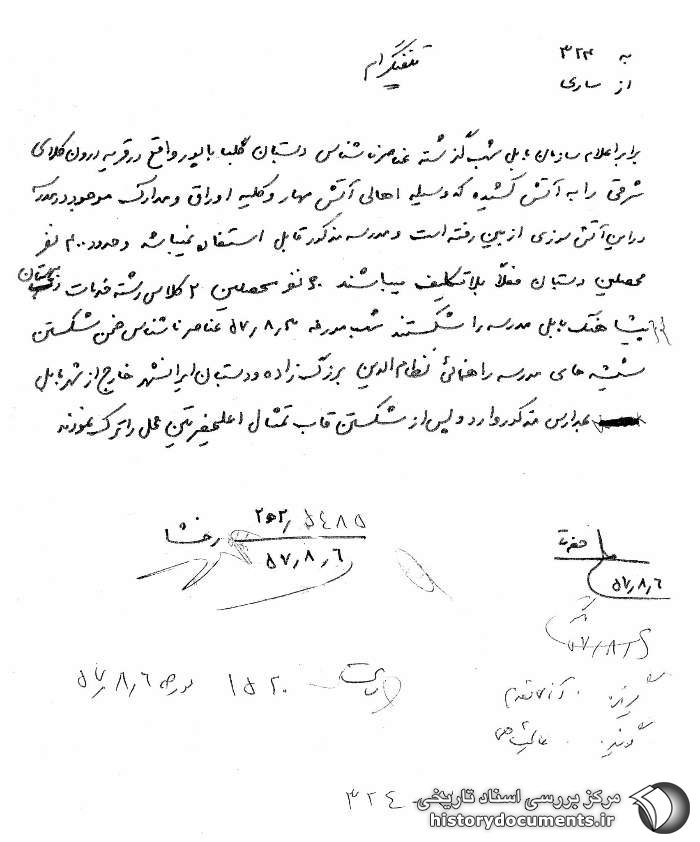 به ۳۲۴
از ساری
تلفنگرام
برابر اعلام سازمان بابل شب گذشته عناصر ناشناس دبستان گلبا با پور واقع در قریه درون کلای
شرقی را به آتش کشیده که وسیله اهالی آتش مهار و کلیه اوراق و مدارک موجود در مدرسه
در این آتش سوزی از بین رفته است و مدرسه مذکور قابل استفاده نمیباشد و حدود ۲۰۰ نفر
محصلین دبستان فعلاً بلاتکلیف میباشند ۶۰ نفر محصلین ۲ کلاس رشته خدمات دبستان
پیشاهنگ بابل مدرسه را شکستند شب مورخه ۵۷٫۸٫۳ عناصر ناشناس ضمن شکستن
شیشه های مدرسه راهنمائی نظام الدین بزرگ زاده و دبستان ایرانشهر خارج از شهر بابل
بمدارس مذکور وارد و پس از شکستن قاب تمثال اعلیحضرتین محل را ترک نمودند
۲ه۲٫ ۵۴۸۵
رخشا
۵۷٫۸٫۶
حضرت
۵۷٫۸٫۶
۵۷٫۸٫۶
۱۵۲۰ مورخه ۵۷٫۸٫۶
گیرنده: آقای مقدم
گوینده:
۳۲۴
مرکز بررسی اسناد تاریخی
historydocuments.ir